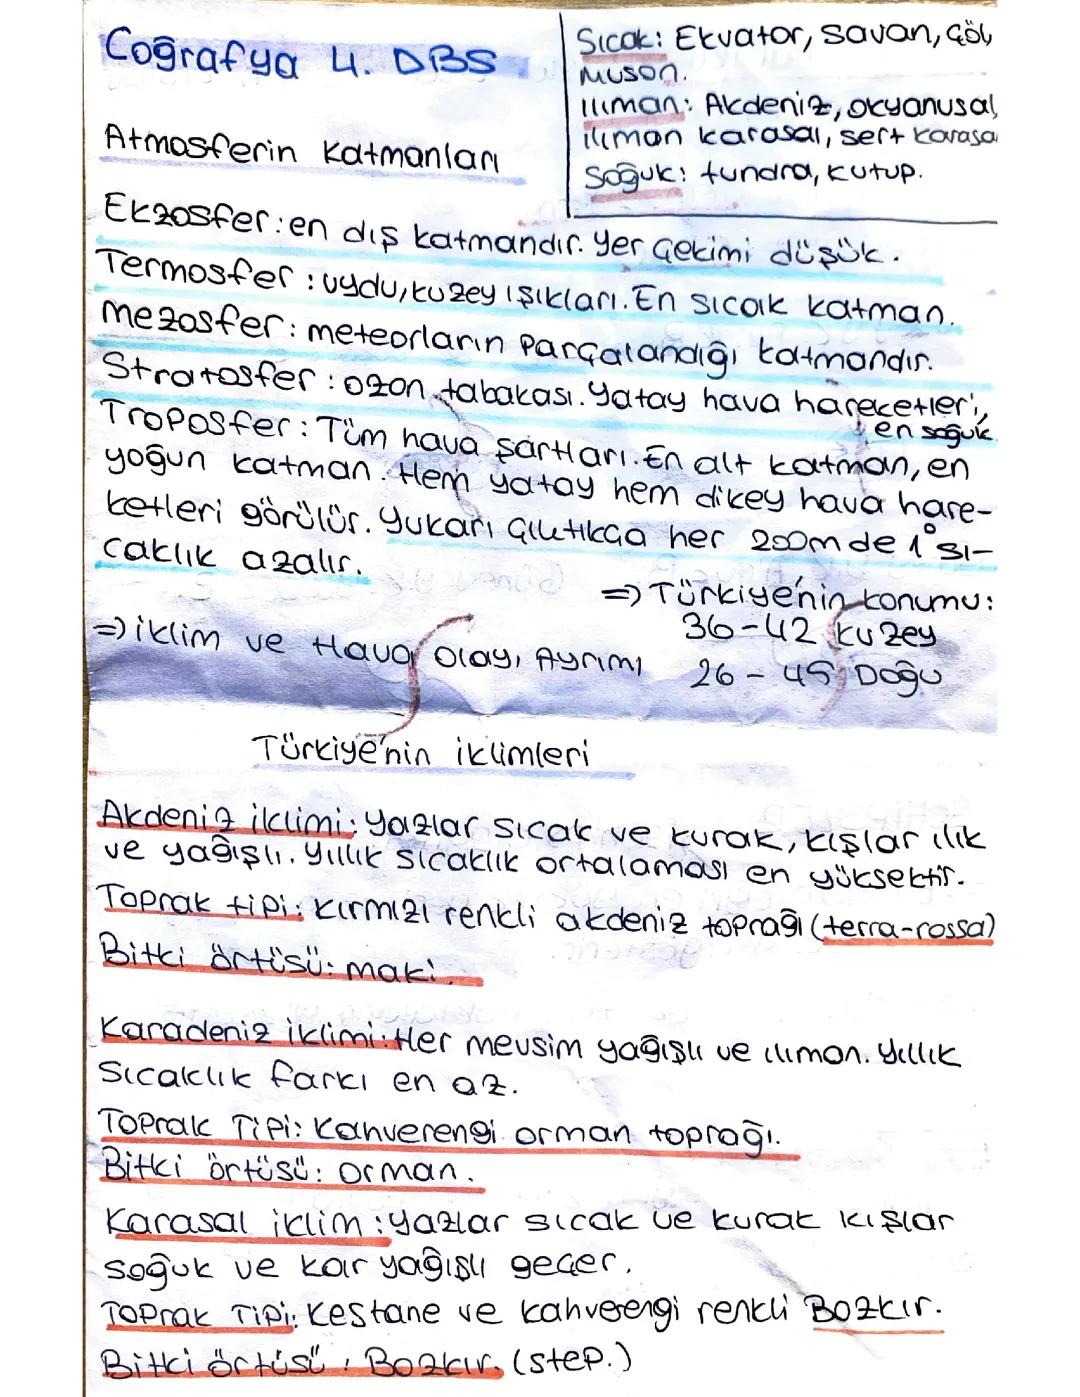 Coğrafya 4. DBS
Sıcak: Ekvator, savan, Çöl,
Muson.
ılıman: Akdeniz, okyanusal,
ılıman karasal, sert karasa
Soğuk: tundra, kutup.
Atmosferin Katmanları
Ekzosfer: en dış katmandır. Yer Çekimi düşük.
Termosfer: uydu, kuzey ışıkları. En sıcak katman.
Mezosfer: meteorların Parçalandığı katmandır.
Stratosfer: ozon tabakası. Yatay hava hareketleri,
en soğuk
Troposfer: Tüm hava şartları. En alt katman, en
yoğun katman. Hem yatay hem dikey hava hare-
ketleri görülür. Yukarı Çıktıkça her 200m de 1° sı-
caklık azalır.
=> Türkiye'nin konumu:
36-42 Kuzey
26-45 Doğu
=> iklim ve Hava olayı Ayrımı
Türkiye'nin iklimleri
Akdeniz iklimi: yazlar sıcak ve kurak, kışlar ılık
ve yağışlı. Yıllık sıcaklık ortalaması en yüksektir.
Toprak tipi: Kırmızı renkli akdeniz toprağı (terra-rossa)
Bitki örtüsü: maki.
Karadeniz iklimi: Her mevsim yağışlı ve ılıman. Yıllık
Sıcaklık farkı en az.
Toprak Tipi: Kahverengi orman toprağı.
Bitki örtüsü: orman.
Karasal iklim: yazlar sıcak ve kurak kışlar
soğuk ve kar yağışlı geçer.
Toprak Tipi: Kestane ve kahverengi renkli Bozkır.
Bitki örtüsü: Bozkır. (step.)